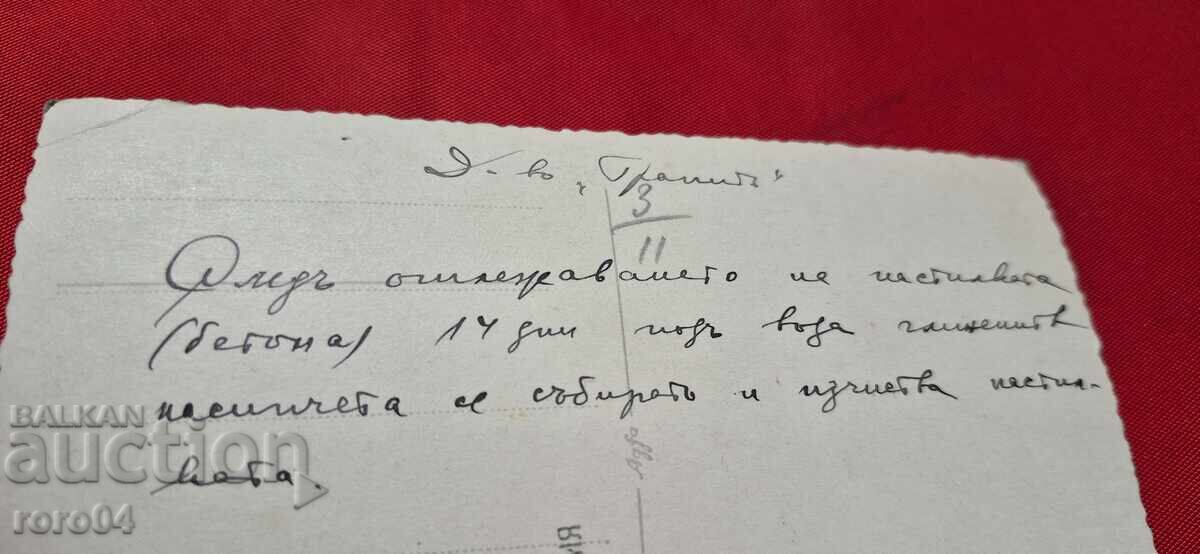 Д-во „Гранитъ“
3
11
Следъ отлежаването на настилката
(бетона) 14 дни подъ вода глинените
насипчета се събиратъ и изчиства настил-
ката.
BALKAN
auction
roro04